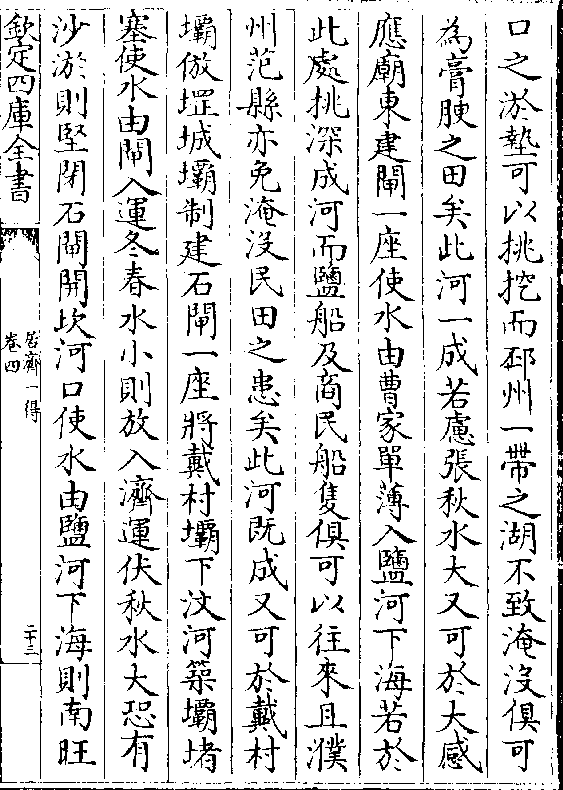 口之淤墊可以挑挖而邳州一帶之湖不致淹没俱可
為膏腴之田矣此河一成若慮張秋水大又可於大感
應廟東建閘一座使水由曹家單薄入鹽河下海若於
此處挑深成河而鹽船及商民船隻俱可以往來且濮
州范縣亦免淹没民田之患矣此河既成又可於戴村
壩倣堽城壩制建石閘一座將戴村壩下汶河築壩堵
塞使水由閘入運冬春水小則放入濟運伏秋水大恐有
沙淤則堅閉石閘開坎河口使水由鹽河下海則南旺
欽定四庫全書
居濟一得
卷四
二十三